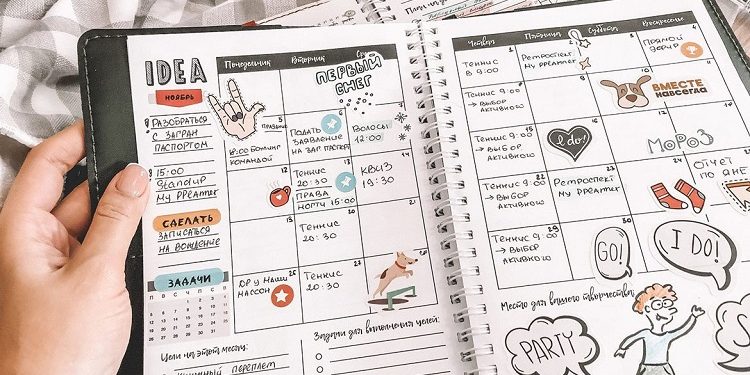 IDEA
НОЯБРЬ
РАЗОБРАТЬСЯ
С ЗАГРАН
ПАСПОРТОМ
15:00
StandUp
My PReamer
СДЕЛАТЬ
ЗАПИСАТЬСЯ
НА ВОЖДЕНИЕ
ЗАДАЧИ
Цели на этот месяц:
Понедельник
Вторник
ПЕРВЫЙ
СНЕГ
5
ПРАЗДНИК
18:00 БОМБИНГ
КОМАНДОЙ
6
ПОДАТЬ
ЗАЯВЛЕНИЕ
НА ЗАГ ПАСПОРТ
ВОЛОСЫ
12:00
12
ТЕННИС
20:30
ПРАВА
НОГТИ 15:00
14
КВИЗ
19:30
ТЕННИС
20:30
26
ДР У НАШИ
МАССОН
ТЕННИС
20:30
Задачи для выполнения целей:
Четверг
Пятница
Суббота
Воскресенье
1
ТЕННИС
В 9:00
Ретроспект
My PReamer
4
ПРЯМОЙ
ЭФИР
ТЕННИС 9:00
→ ВЫБОР
АКТИВНОЮ
ВМЕСТЕ
НАВСЕГДА
15
ТЕННИС 9:00
→ ВЫБОР
АКТИВНОЮ
I do!
МОРОЗ
22
ТЕННИС 9:00
→ ВЫБОР
АКТИВНОЮ
Ретроспект
My PReamer
ОТЧЕТ
ПО АНЕ
29
ТЕННИС 9:00
→ ВЫБОР
АКТИВНОЮ
GO!
I DO!
Место для вашего творчества:
PARTY